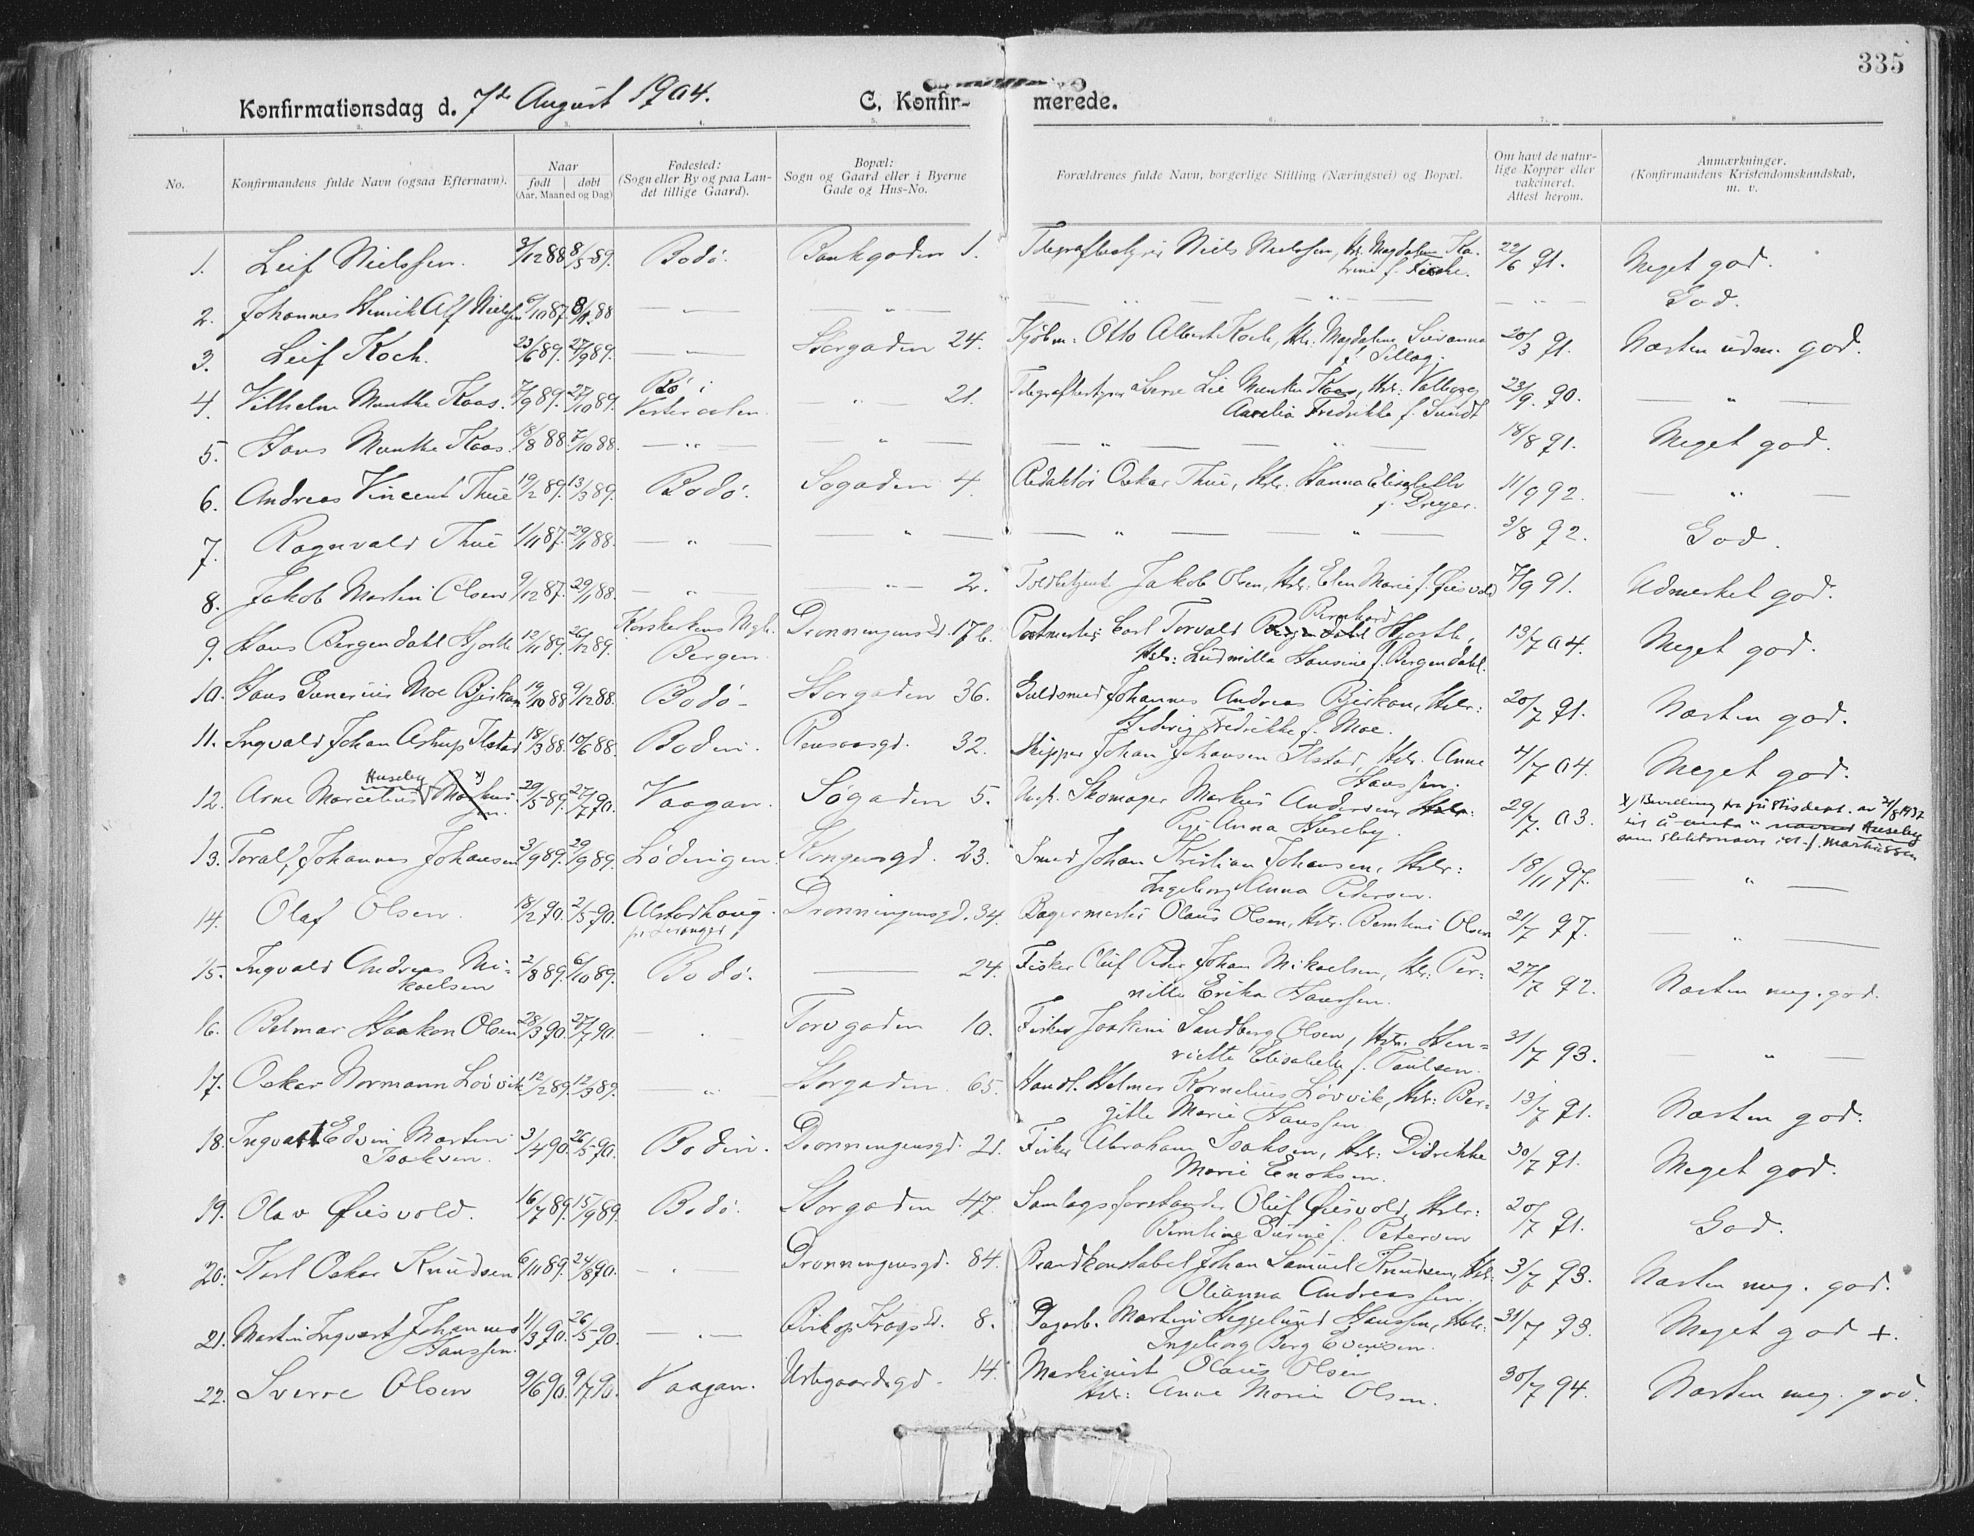 335
Konfirmationsdag d. 7de August 1904. C. Konfir- merede.
1. 2. 3. 4. 5. 6. 7. 8
No. Konfirmandens fulde Navn (ogsaa Efternavn). Naar født døbt (Aar, Maaned og Dag) Fødested: (Sogn eller By og paa Landet tillige Gaard). Bopæl: Sogn og Gaard eller i Byerne Gade og Hus-No. Forældrenes fulde Navn, borgerlige Stilling (Næringsvei) og Bopæl. Om havt de naturlige Kopper eller vakcineret. Attest herom. Anmærkninger. (Konfirmandens Kristendomskundskab, m. v.
1. Leif Nielssen. 3/12 88 8/5 89. Bodø. Bankgaden 1. Telegrafbestyrer Niels Nielssen, Hr. Magdalena Ka- 22/6 91. Meget god.
trine f.
2. Johannes Henrik Alf Nielssen 6/10 87. 88 — " — — " — — " — " — — " — God.
3. Leif Koch. 23/6 89. 27/9 89. — " — Storgaden 24. Kjøbm. Otto Albert Koch, Hr. Magdalene Susanna 20/3 91. Næsten udm. god.
4. Vilhelm Munthe Kaas. 7/9 89. 27/10 89. Bø i — " — 21. Telegrafbestyrer Sverre Lie Munthe Kaas, Hst. Valborg 23/9. 90. — " —
Vesteraalen. Aurelia Fredrikke f. Sundt
5. Hans Munthe Kaas. 18/8 88. 7/10 88. — " — — " — — " — " — 18/8 91. Meget god.
6. Andreas Vincent Thue 19/2 89. 13/3 89. Bodø. Søgaden 4 Redaktør Oskar Thue, Hst. Hanna Elisabeth 11/9 92. — " —
f. Dreyer.
7. Ragnvald Thue 1/11 87. 29/1 88. — " — — " — — " — " — 3/8 92. God.
8. Jakob Martin Olsen 9/12 87. 29/1 88. — " — — " — 2. Toldbetjent Jakob Olsen, Hst. Elen Marie f. Øiesvold 7/9 91. Udmerket god.
9. Hans Bergendahl Hjorth 12/11 89. 26/12 89. Korskirkens Mgh. Dronningensgd. 17 b. Postmester Carl Torvald Bernhard Hjorth, 13/7 04. Meget god.
Bergen. Hst: Ludmilla Hansine f. Bergendahl.
10. Hans Gunerius Moe Bjerkan 19/10 88 9/12 88. Bodø — Storgaden 36. Guldsmed Johannes Andreas Bjerkan, Hst: 20/7 91. Næsten god.
Hedvig Fredrikke f. Moe.
11. Ingvald Johan Astrup Ilstad 18/3 88. 10/6 88. Bodin. Rensaasgd. 32. Skipper Johan Johansen Ilstad, Hst. Anne 4/7 04. Meget god.
Hanssen.
12. Arne Marcelius Huseby x) 29/5 89. 27/7 90. Vaagan. Søgaden 5. Skomager Markus Andersen, 29/7. 03. x) Bevilling fra Justisdept. av 21/8 1937
Anna Huseby. til å anta " navnet Huseby
som slektsnavn ist. f. Markussen
13. Toralf Johannes Johansen 3/9 89. 29/9 89. Lødingen. Kongensgd. 23. Smed Johan Kristian Johansen, Hst: 18/11 97. — " —
Ingeborg Anna Pedersen.
14. Olaf Olsen. 18/2 90. 2/5 90. Alstadhaug. Dronningensgd. 34. Bagermester Olaus Olsen, Hst. Berntine Olsen 21/7 97. — " —
15. Ingvald Andreas Mi- 2/8 89. 6/10 89. Bodø. — 24. Fisker Oluf Peder Johan Mikaelsen, Hst. Per- 27/7 92. Næsten meg. god.
kaelsen nille Erika Hanssen.
16. Belmar Haakon Olsen 28/3 90. 27/7 90. — " — Torvgaden 10. Fisker Joakim Sandberg Olsen, Hst. Hen- 31/7 93. — " —
riette Elisabeth f. Paulsen.
17. Oskar Normann Løvvik 12/2 89. 12/3 89. — " — Storgaden 65. Handl. Helmer Kornelius Løvvik, Hst: Ber- 13/7 91. Næsten god.
gitte Marie Hanssen.
18. Ingvart Edvin Martin 3/4 90. 26/5 90. Bodin. Dronningensgd. 21. Fisker Abraham Isaksen, Hst: Didrikke 30/7 91. Meget god.
Isaksen. Marie Enoksen.
19. Olav Øiesvold. 16/7 89. 15/9 89. Bodø. Storgaden 47. Samlagsforstander Oluf Øiesvold, Hst: 20/7 91. God.
Berntine Sirine f. Petersen
20. Karl Oskar Knudsen 6/11 89. 24/8 90. — " — Dronningensgd. 84. Brandkonstabel Johan Samuel Knudsen, Hst. 3/7 93. Næsten meg. god.
Olianna Andreassen.
21. Martin Ingvart Johannes 11/3 90. 26/5 90. — " — Biskop Krogs gd. 8. Dagarb. Martin Heggelund Hanssen, Hst: 31/7 93. Meget god +.
Hanssen. Ingeborg Berg Evensen.
22. Sverre Olsen 9/6 90. 9/7 90. Vaagan. Urtegaardsgd. 14. Maskinist Olaus Olsen 30/7 94. Næsten meg. god.
Hst: Anne Marie Olsen.